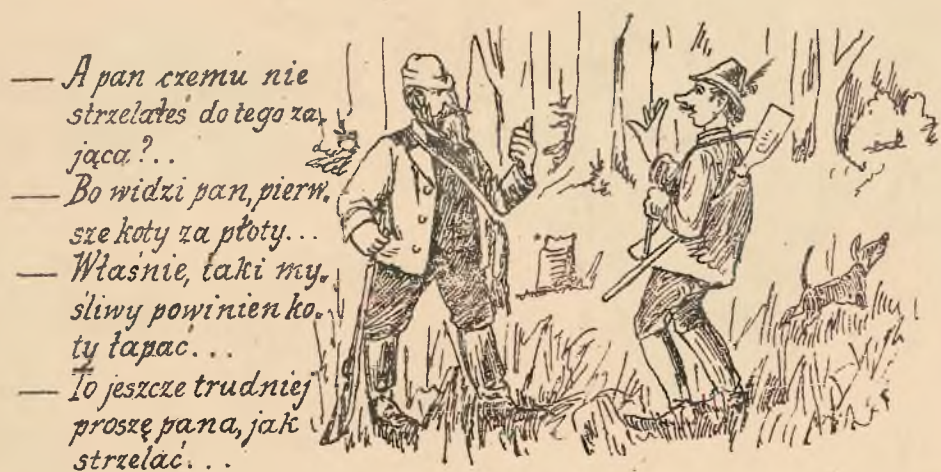 — A pan czemu nie
strzelałeś do tego za-
jąca?..
— Bo widzi pan, pierw-
sze koty za płoty...
— Właśnie, taki my-
śliwy powinien ko-
ty łapac...
— To jeszcze trudniej
proszę pana, jak
strzelać...